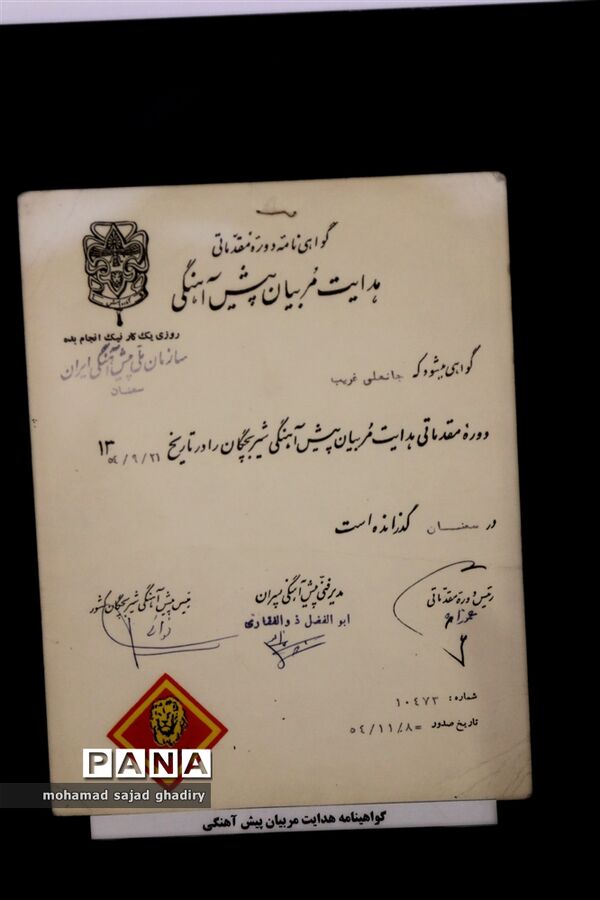 گواهی نامه دورهٔ مقدّماتی
هدایت مُربیان پیش آهنگی
روزی یک کار نیک انجام بده
سازمان ملی پیش آهنگی ایران
سمنان
گواهی میشود که جانعلی غریب
دورهٔ مقدماتی هدایت مُربیان پیش آهنگی شیربچگان را در تاریخ ۵۴/۹/۲۱ ۱۳
در سمنان گذرانده است
رئیس دوره مقدماتی
مدیر فنی پیش آهنگی پسران
ابوالفضل ذوالفقاری
رئیس پیش آهنگی شیربچگان کشور
شماره: ۱۰۴۷۳
تاریخ صدور = ۵۴/۱۱/۸
PANA
mohamad sajad ghadiry
گواهینامه هدایت مربیان پیش آهنگی